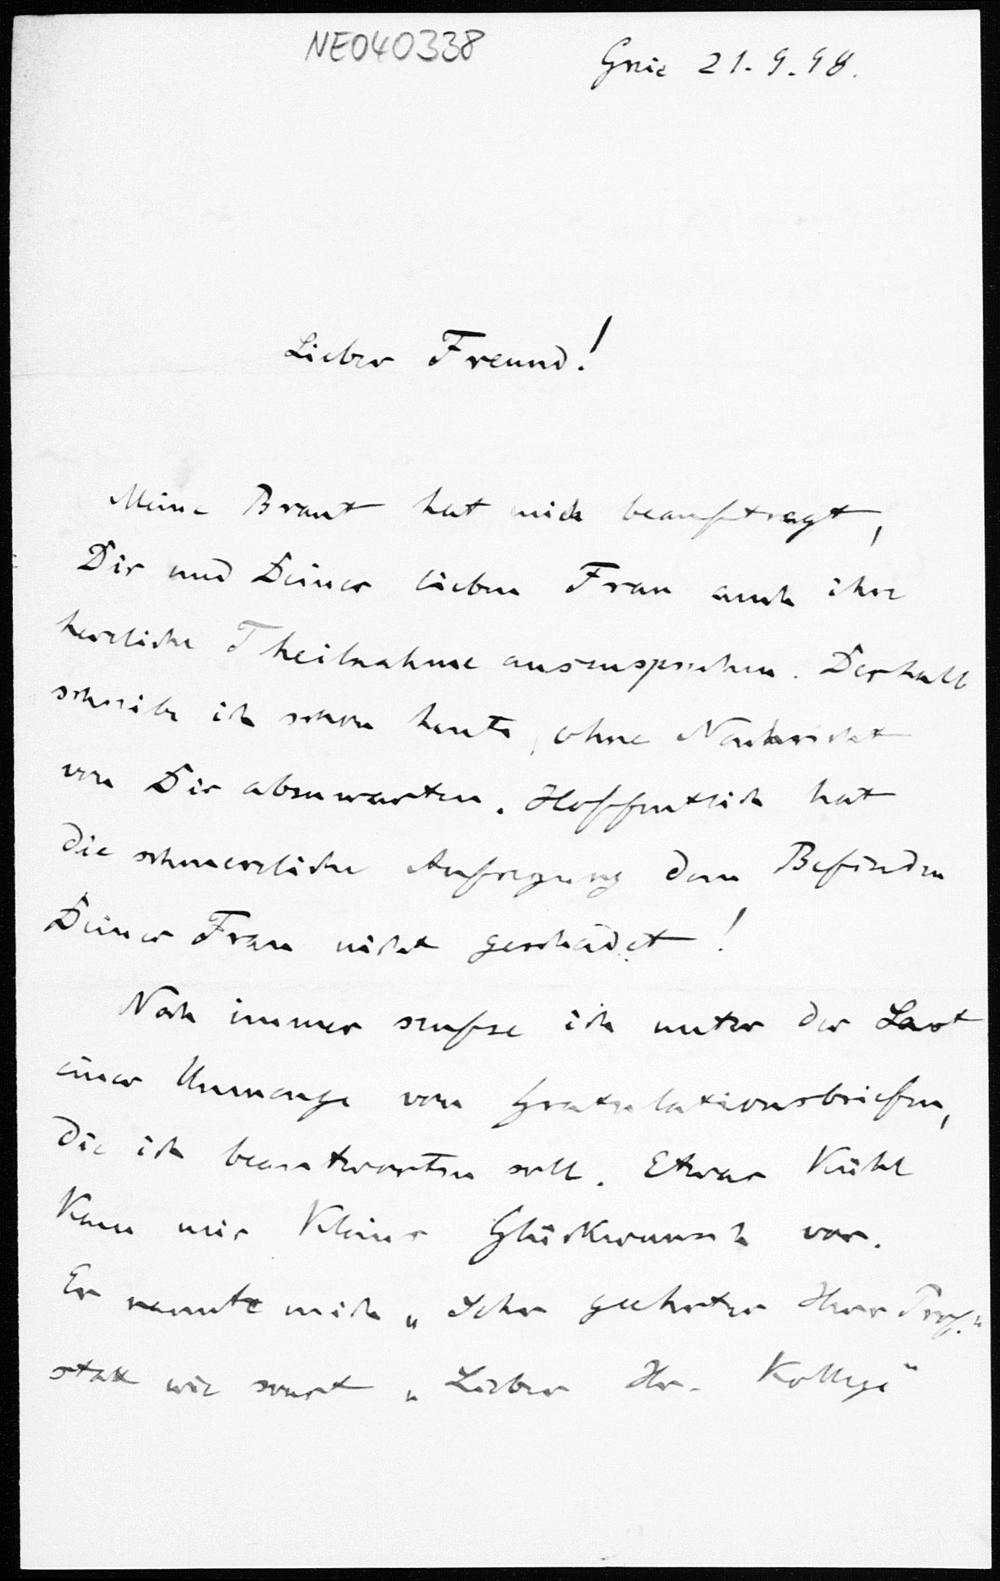 NE040338
21.9.98.
Lieber Freund!
Meine Braut hat mich beauftragt,
Dir und Deiner lieben Frau auch ihre
herzliche Theilnahme auszusprechen. Deshalb
schreibe ich schon heute, ohne Nachricht
von Dir abzuwarten. Hoffentlich hat
die schmerzliche Aufregung dem Befinden
Deiner Frau nicht geschadet!
Noch immer seufze ich unter der Last
einer Unmenge von Gratulationsbriefen,
die ich beantworten soll. Etwas kühl
kam mir Kleins Glückwunsch vor.
Er nannte mich „Sehr geehrter Herr Prof.“
statt wie sonst „Lieber Hr. Kollege“